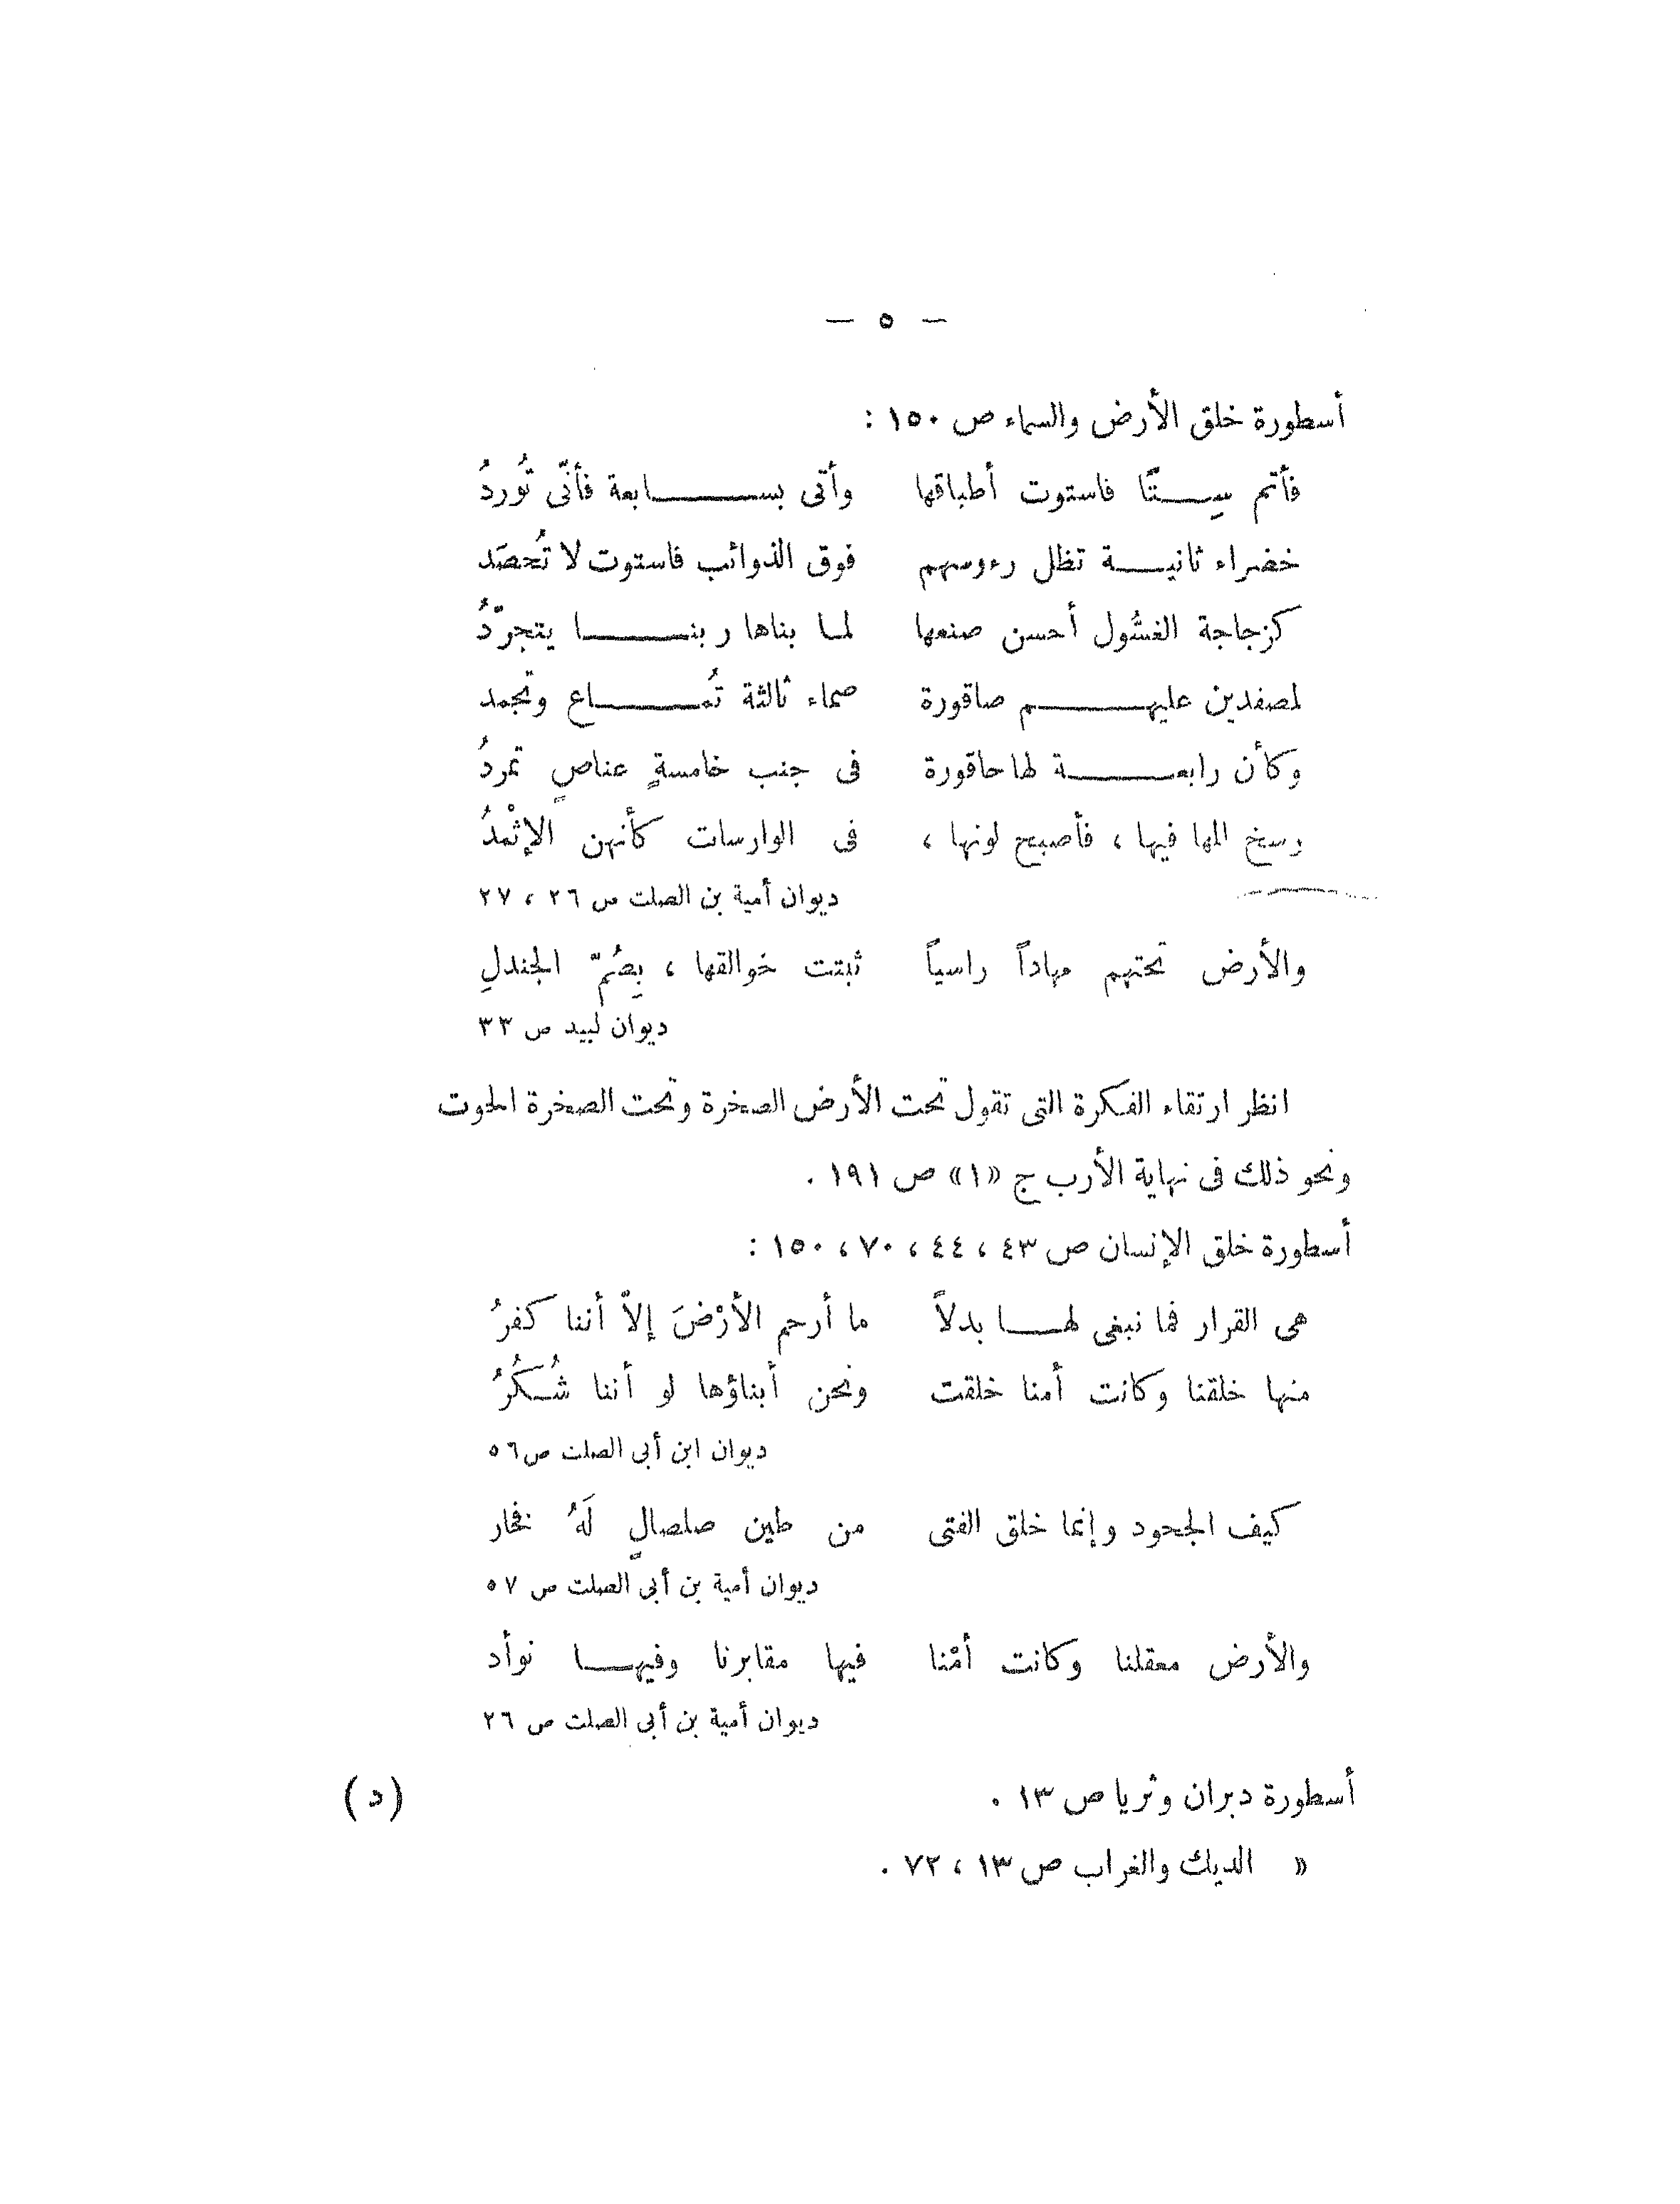 — ٥ —
أسطورة خلق الأرض والسماء ص ١٥٠ :
فأتم سِتًّا فاستوت أطباقها وأتى بسابعة فأنّى تُوردُ
خضراء ثانية تظل رءوسهم فوق الذوائب فاستوت لا تُحصَد
كزجاجة الغسُول أحسن صنعها لما بناها ربنا يتجرّدُ
لمصفدين عليهم صاقورة صماء ثالثة تُماع وتجمد
وكأن رابعة لها حاقورة فى جنب خامسةٍ عناصٍ تمردُ
رسخ المها فيها ، فأصبح لونها ، فى الوارسات كأنهن الإثْمدُ
ديوان أمية بن الصلت ص ٢٦ ، ٢٧
والأرض تحتهم مهاداً راسياً ثبتت خوالقها ، بِصُمّ الجندلِ
ديوان لبيد ص ٣٣
انظر ارتقاء الفكرة التى تقول تحت الأرض الصخرة وتحت الصخرة الحوت
ونحو ذلك فى نهاية الأرب ج «١» ص ١٩١ .
أسطورة خلق الإنسان ص ٤٣ ، ٤٤ ، ٧٠ ، ١٥٠ :
هى القرار فما نبغى لها بدلاً ما أرحم الأرْضَ إلاّ أننا كفرُ
منها خلقنا وكانت أمنا خلقت ونحن أبناؤها لو أننا شُكُرُ
ديوان ابن أبى الصلت ص ٥٦
كيف الجحود وإنما خلق الفتى من طين صلصالٍ لَهُ فخار
ديوان أمية بن أبى الصلت ص ٥٧
والأرض معقلنا وكانت أمْنا فيها مقابرنا وفيها نوأد
ديوان أمية بن أبى الصلت ص ٢٦
أسطورة دبران وثريا ص ١٣ . (د)
« الديك والغراب ص ١٣ ، ٧٢ .